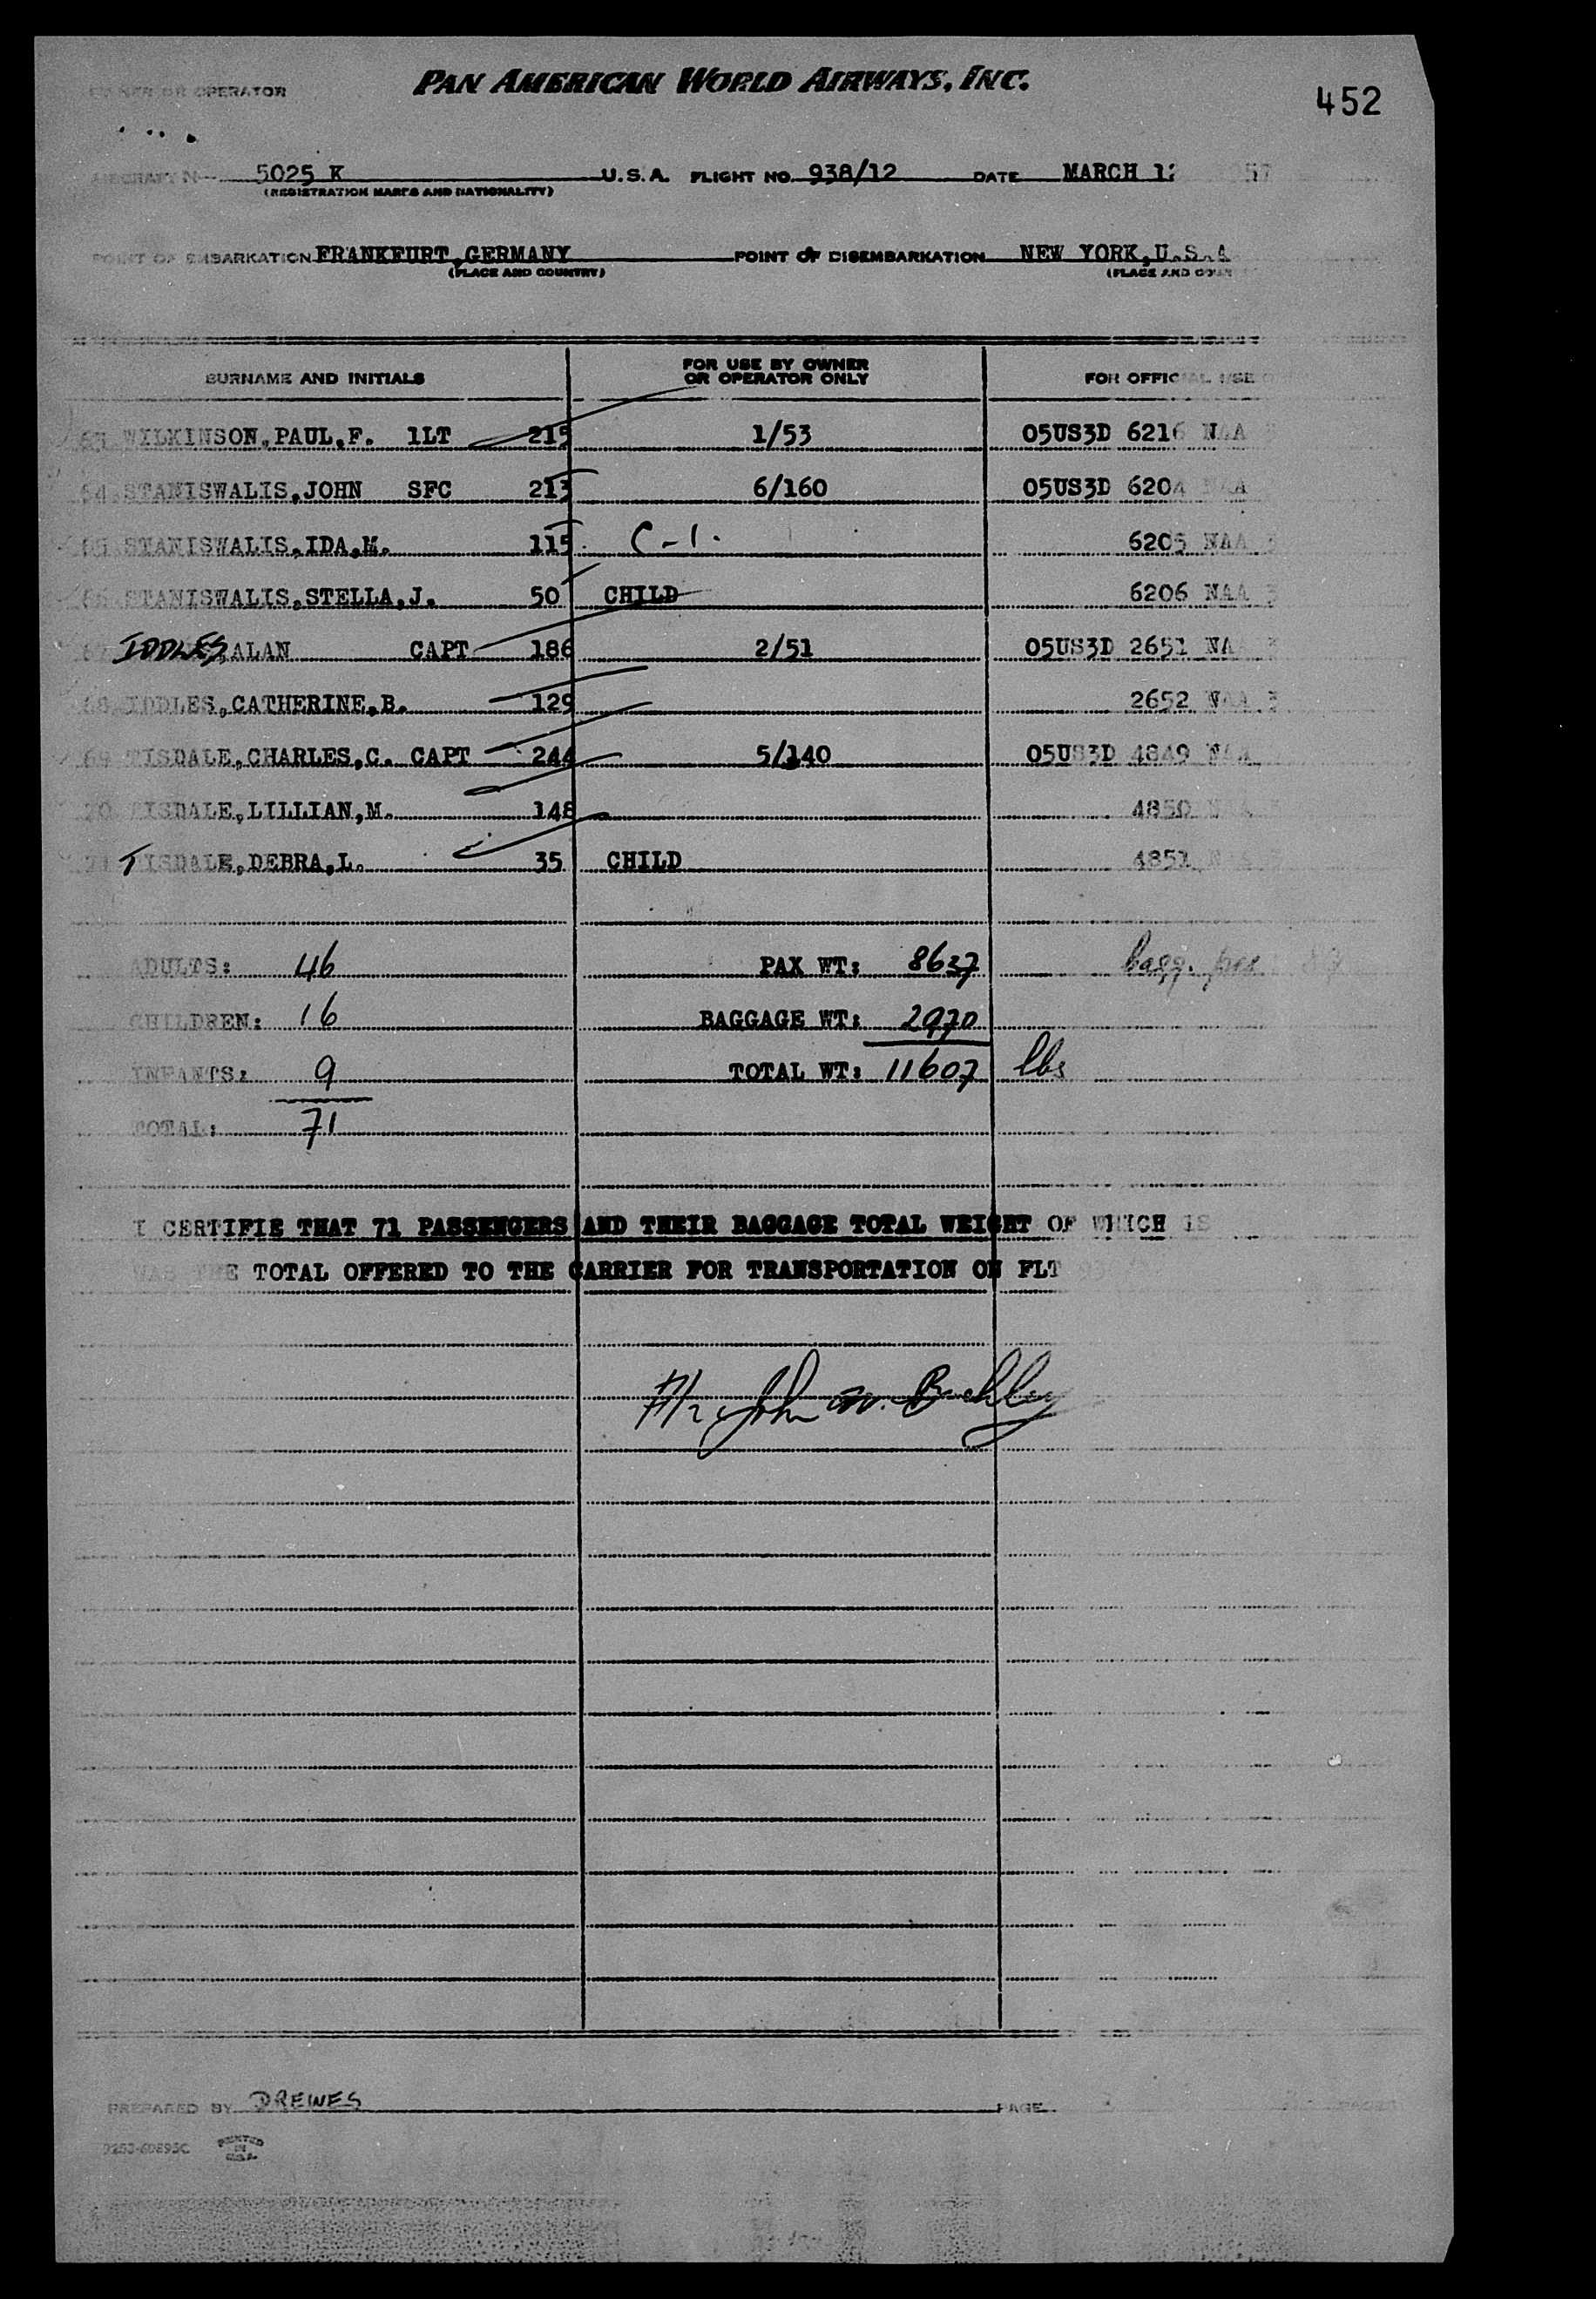 PAN AMERICAN WORLD AIRWAYS, INC.
OWNER OR OPERATOR
452
AIRCRAFT 5025 K U.S.A. FLIGHT NO. 938/12 DATE MARCH 12 57
(REGISTRATION MARKS AND NATIONALITY)
POINT OF EMBARKATION FRANKFURT,GERMANY POINT OF DISEMBARKATION NEW YORK,U.S.A
(PLACE AND COUNTRY) (PLACE AND COUN
SURNAME AND INITIALS FOR USE BY OWNER OR OPERATOR ONLY FOR OFFICIAL USE
63 WILKINSON,PAUL,F. 1LT 215 1/53 05US3D 6216 NAA
64 STANISWALIS,JOHN SFC 213 6/160 05US3D 6204 NAA
65 STANISWALIS,IDA,M. 115 C-1. 6205 NAA 3
66 STANISWALIS,STELLA,J. 50 CHILD 6206 NAA 3
67 IDDLES,ALAN CAPT 186 2/51 05US3D 2651 NA 3
68 IDDLES,CATHERINE,B. 129 2652 NAA 3
69 TISDALE,CHARLES,C. CAPT 244 5/140 05US3D 4849 NAA
70 TISDALE,LILLIAN,M. 148 4850 N A
71 TISDALE,DEBRA,L. 35 CHILD 4851 NAA
ADULTS: 46 PAX WT: 8637 bagg. pcs
CHILDREN: 16 BAGGAGE WT: 2970
INFANTS: 9 TOTAL WT: 11607 lbs
TOTAL: 71
I CERTIFIE THAT 71 PASSENGERS AND THEIR BAGGAGE TOTAL WEIGHT OF WHICH IS
WAS THE TOTAL OFFERED TO THE CARRIER FOR TRANSPORTATION ON FLT
John W. Buckley
PREPARED BY DREWES PAGE PAGES
PRINTED IN U.S.A.